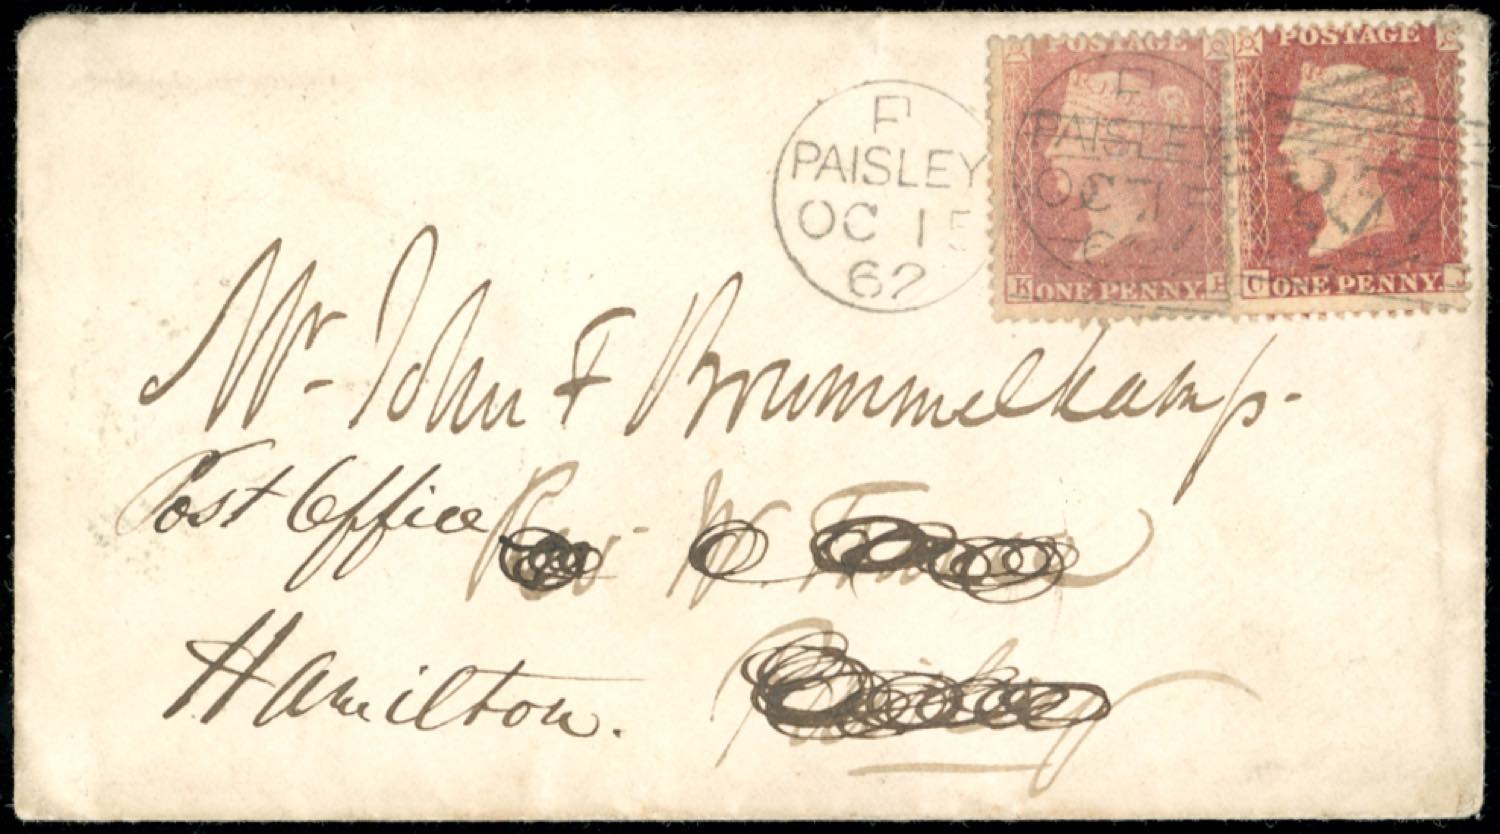 POSTAGE POSTAGE
F
PAISLEY
OC 15
62
F
PAISLEY
OC 15
K ONE PENNY. ONE PENNY.
Mr John F Brummelkamp.
Post Office Rev W.
Hamilton.